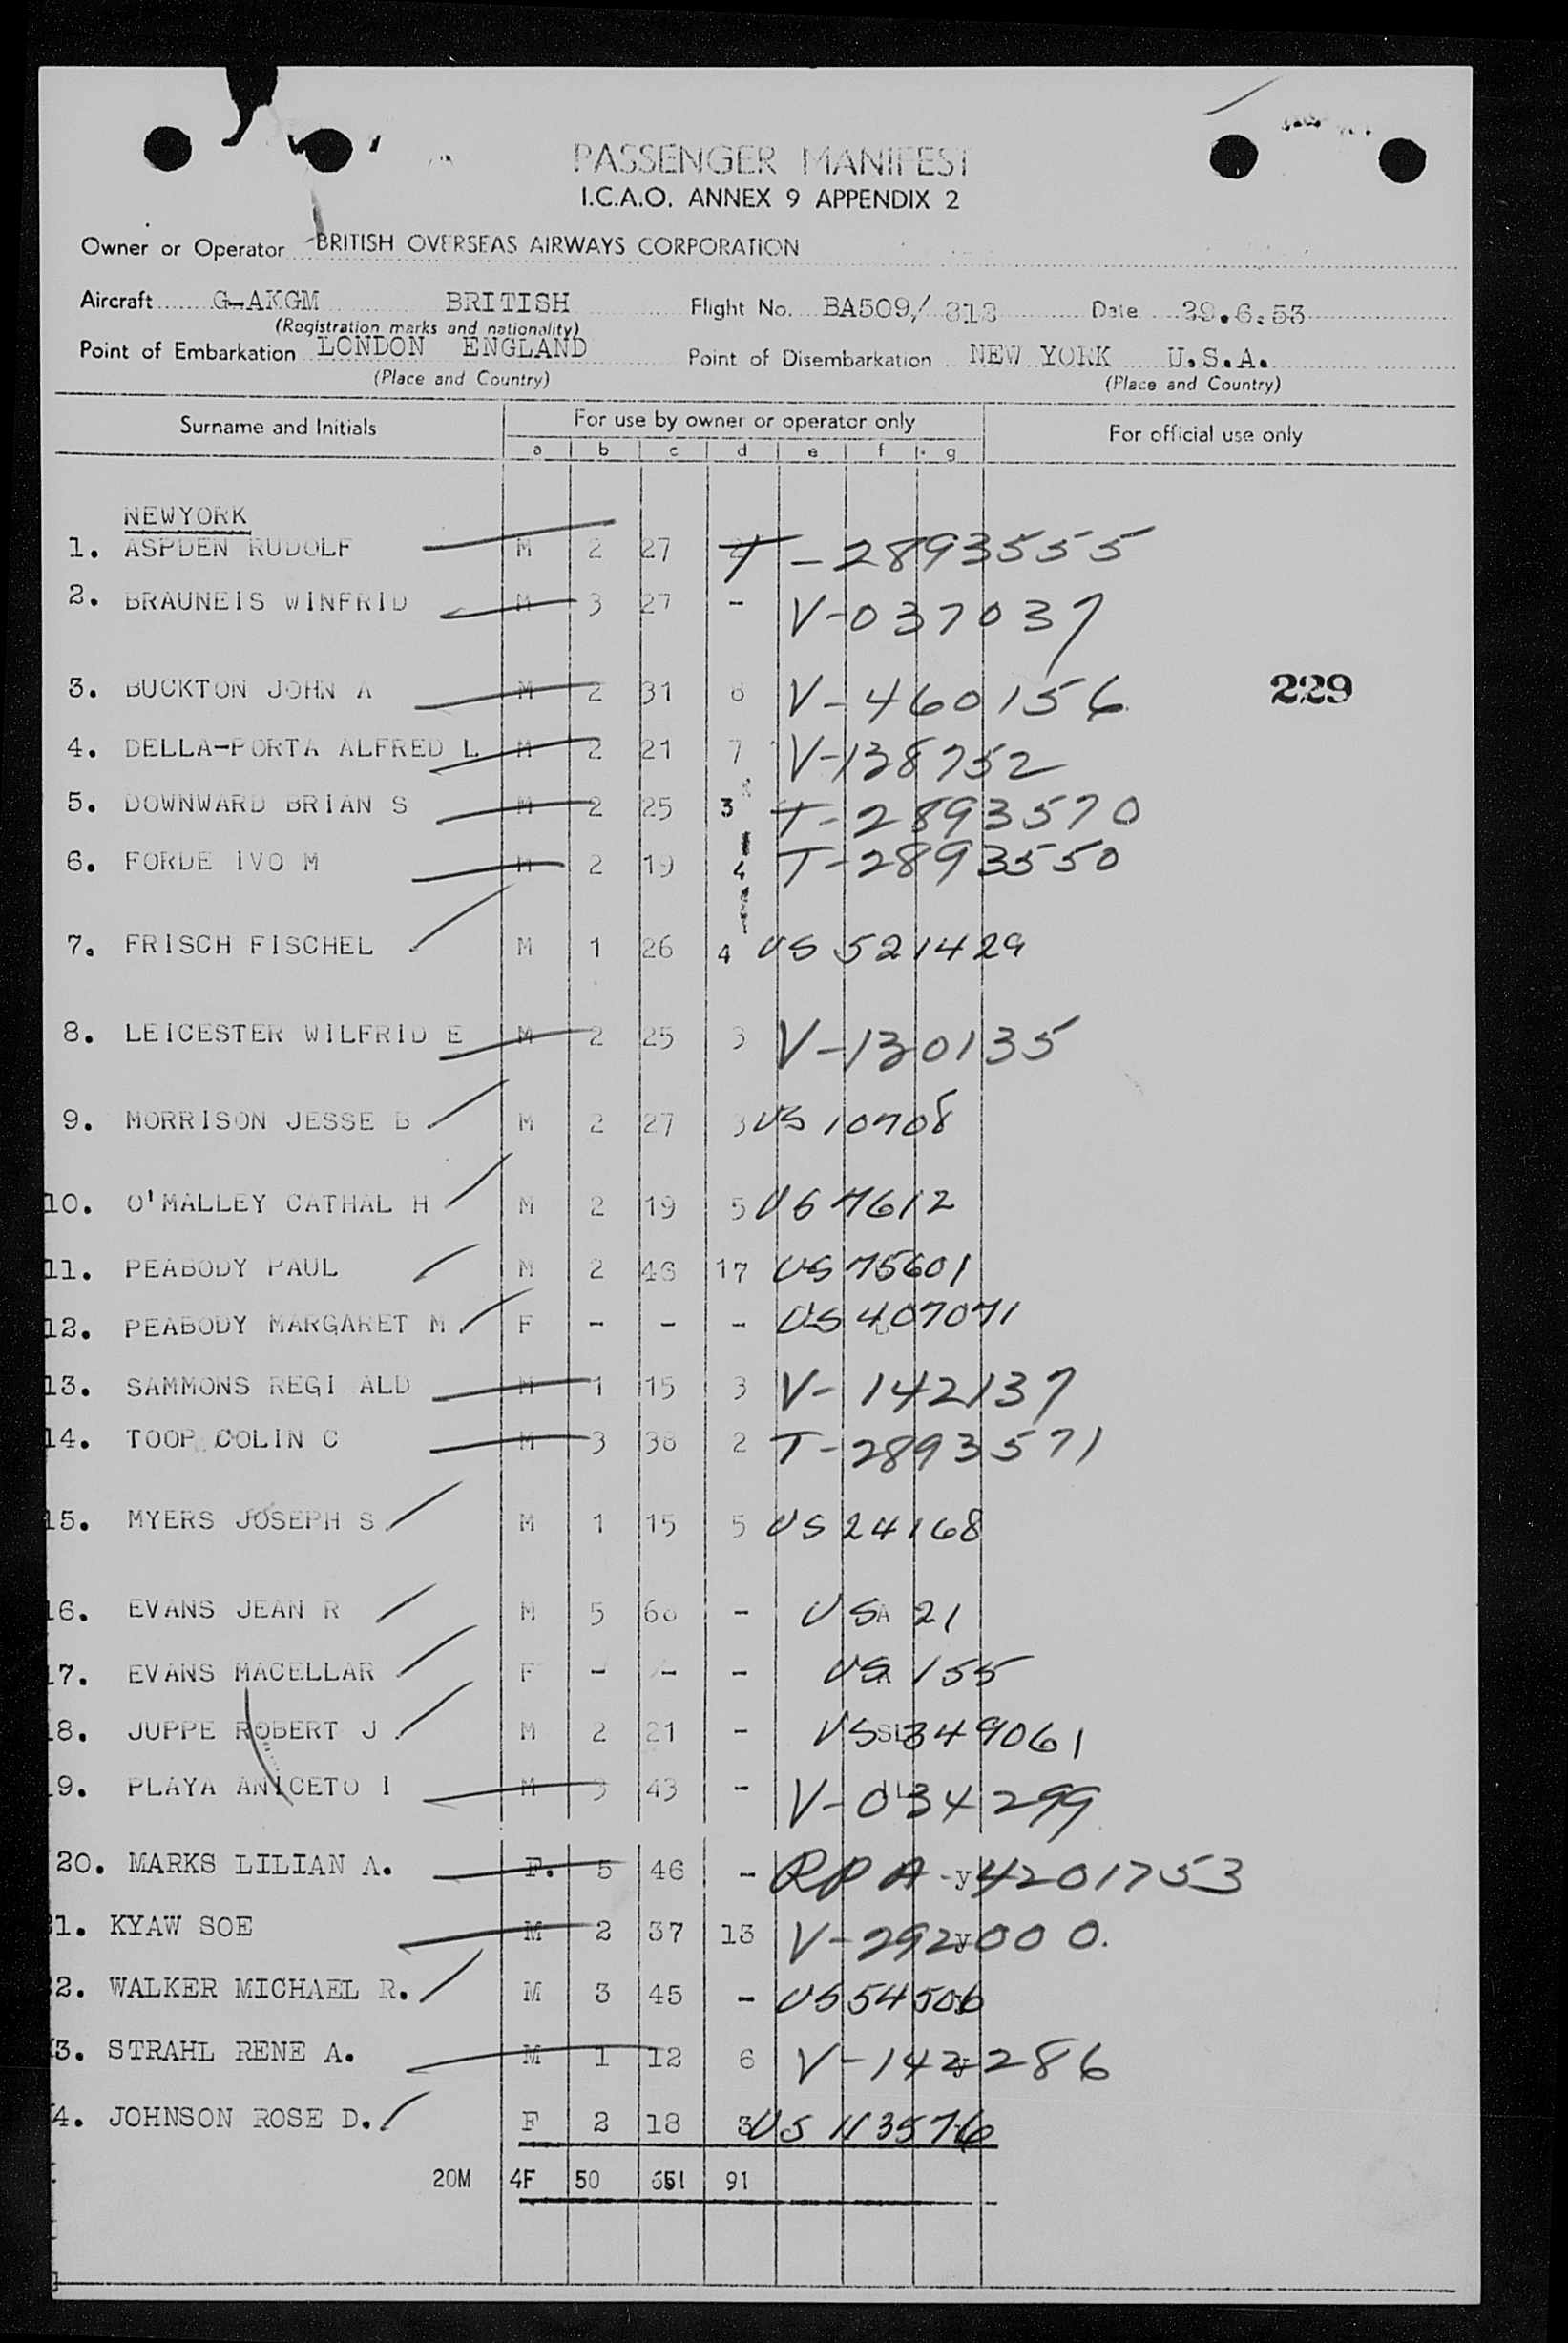 PASSENGER MANIFEST
I.C.A.O. ANNEX 9 APPENDIX 2
Owner or Operator BRITISH OVERSEAS AIRWAYS CORPORATION
Aircraft G-AKGM BRITISH Flight No. BA509/ 313 Date 29.6.53
(Registration marks and nationality)
Point of Embarkation LONDON ENGLAND Point of Disembarkation NEW YORK U.S.A.
(Place and Country) (Place and Country)
Surname and Initials For use by owner or operator only For official use only
a b c d e f g
NEWYORK
1. ASPDEN RUDOLF M 2 27 T-2893555
2. BRAUNEIS WINFRID M 3 27 - V-037037
3. BUCKTON JOHN A M 2 31 6 V-460156 229
4. DELLA-PORTA ALFRED L M 2 21 7 V-138752
5. DOWNWARD BRIAN S M 2 25 3 T-2893570
6. FORDE IVO M M 2 19 4 T-2893550
7. FRISCH FISCHEL M 1 26 4 US 521429
8. LEICESTER WILFRID E M 2 25 3 V-130135
9. MORRISON JESSE B M 2 27 3 US 10708
10. O'MALLEY CATHAL H M 2 19 5 US 7612
11. PEABODY PAUL M 2 46 17 US 75601
12. PEABODY MARGARET M F - - - US 407071
13. SAMMONS REGI ALD M 1 15 3 V-142137
14. TOOP COLIN C M 3 38 2 T-2893571
15. MYERS JOSEPH S M 1 15 5 US 24168
16. EVANS JEAN R M 5 66 - USA 21
17. EVANS MACELLAR F - - - US 155
18. JUPPE ROBERT J M 2 21 - US 349061
19. PLAYA ANICETO I M 3 43 - V-034299
20. MARKS LILIAN A. F. 5 46 - RPA-y4201753
1. KYAW SOE M 2 37 13 V-292000.
2. WALKER MICHAEL R. M 3 45 - US 54506
3. STRAHL RENE A. M 1 12 6 V-142286
4. JOHNSON ROSE D. F 2 18 3 US 113576
20M 4F 50 651 91